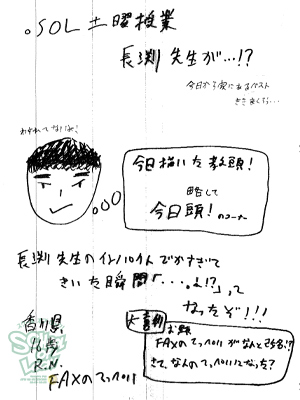 。SOL 土曜授業
長渕先生が…!?
今日から変にあるベスト
わすれてないな!
今日描いた教頭!
略して
今日頭!のコーナー
長渕先生のインパクトでかすぎて
きいた瞬間「・・・よ!?」って
なったぞ!!!
香川県
16歳
R.N.
FAXのてっぺい
大喜利
お題
FAXのてっぺいがなんと改名!?
さて、なんのてっぺいになった?